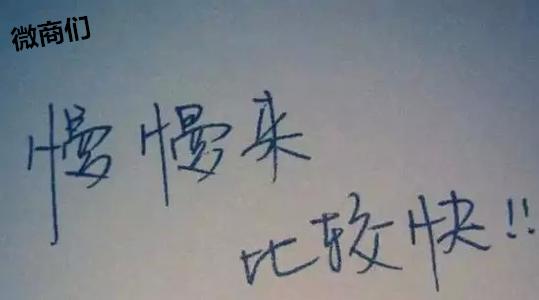 微商们
慢慢来
比较快!!